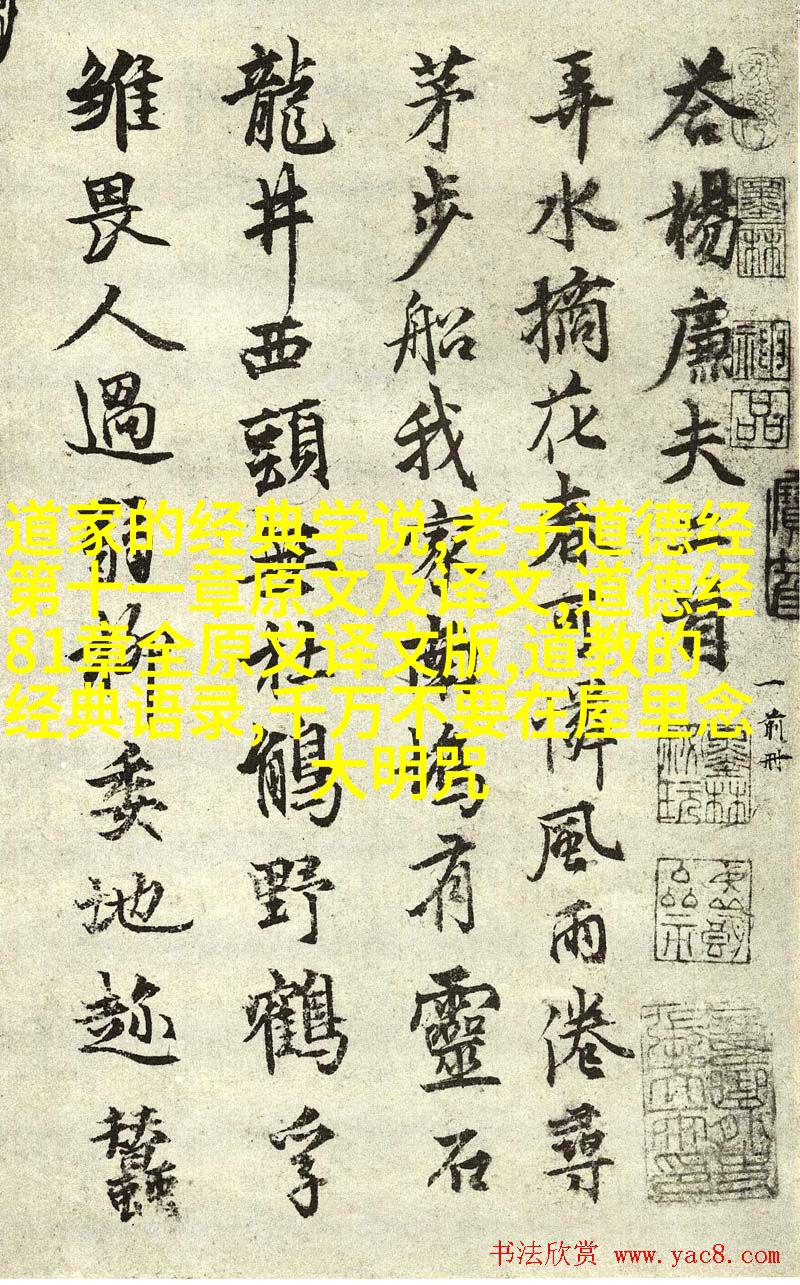 荅楊廉夫二首
弄水摘花春可憐風雨倦尋
茅步船我家塢有靈石
龍井西頭無杜鵑野鶴孚
雛畏人過委地趂蠶
墨林
神品
道家的经典学说,老子道德经
第十一章原文及译文,道德经
81章全原文译文版,道教的
经典语录,千万不要在屋里念
大明咒
书法欣赏 www.yac8.com